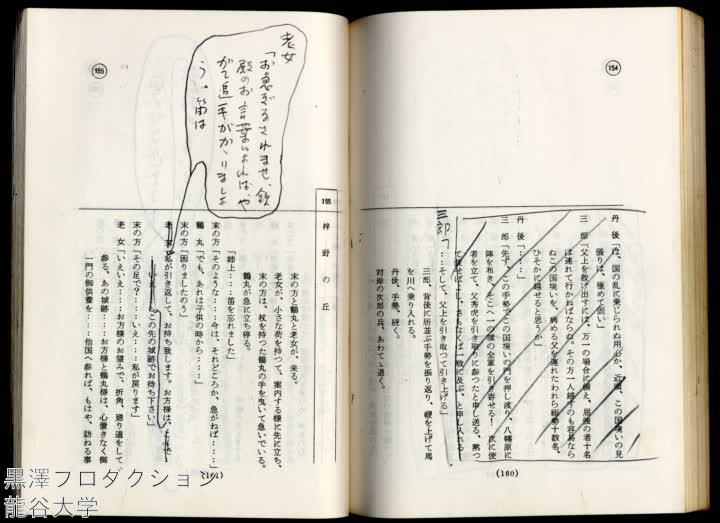 154
丹後「は、国の乱に乗じられぬ用心か、近頃、この国境いの見
張りは、極めて固い」
三郎「父上を救け出すには、万一の場合に備え、屈強の者十名
は連れて行かねばならぬ。その方一人越すのも容易なら
ぬこの国境いを、病める父を連れたわれら総勢十数名、
ひそかに越せると思うか」
丹後「‥‥」
三郎「先ず、この手勢でこの国境いの門を押し渡り、八幡原に
陣を布き、そこへ一の旗の全軍を引き寄せる!次に使
者を立て、父秀虎を引き取りに参ったと申し送る。黙っ
て渡せばよし、さもなくば一戦に及ぶ、と申し入れる!
三郎「
‥‥そして、父上を引き取って引き上げる」
三郎、背後に居並ぶ手勢を振り返り、鞭を上げて馬
を川へ乗り入れる。
丹後、手勢、続く。
対岸の次郎の兵、あわてゝ退く。
(160)
155
155 梓野の丘
老女
「お急ぎなされませ、鉄
殿のお言葉によれば、や
がて追手がかゝりましょ
う。笛は
末の方と鶴丸と老女が、来る。
老女が、小さな荷を持って、案内する様に先に立ち、
末の方は、杖を持った鶴丸の手を曳いて急いでいる。
鶴丸が急に立ち停る。
「姉上‥‥笛を忘れました」
末の方「そのような‥‥今は、それどころか、急がねば‥‥」
鶴丸「でも、あれは子供の時から‥‥」
末の方「困りましたのう」
老女「私が引き返して、お持ち致します。お方様は、
この先の城跡でお待ち下さい」
末の方「その足で?‥‥いえ‥‥私が戻ります」
老女「いえいえ‥‥お方様のお望みで、折角、廻り道をして
参る、あの城跡‥‥お方様と鶴丸様は、心置きなく御
一門の御供養を‥‥他国へ参れば、もはや、訪ねる事
(161)
黒澤プロダクション
龍谷大学